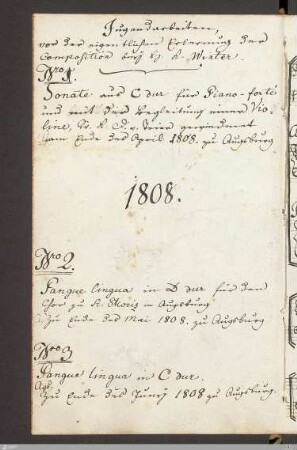 Jugendarbeiten,
vor der eigentlichen Erlernung der
Composition bey H. K. Winter.
Nro 1.
Sonate aus C dur für Piano-forte
und mit der Begleitung einer Vio-
line, Fr. K. gewidmet
am Ende des April 1808. zu Augsburg.
1808.
Nro 2.
Pange lingua in D dur für den
Chor zu St. Moriz in Augsburg
Zu Ende des Mai 1808. zu Augsburg
Nro 3
Pange lingua in C dur.
Zu Ende des Juny 1808 zu Augsburg.